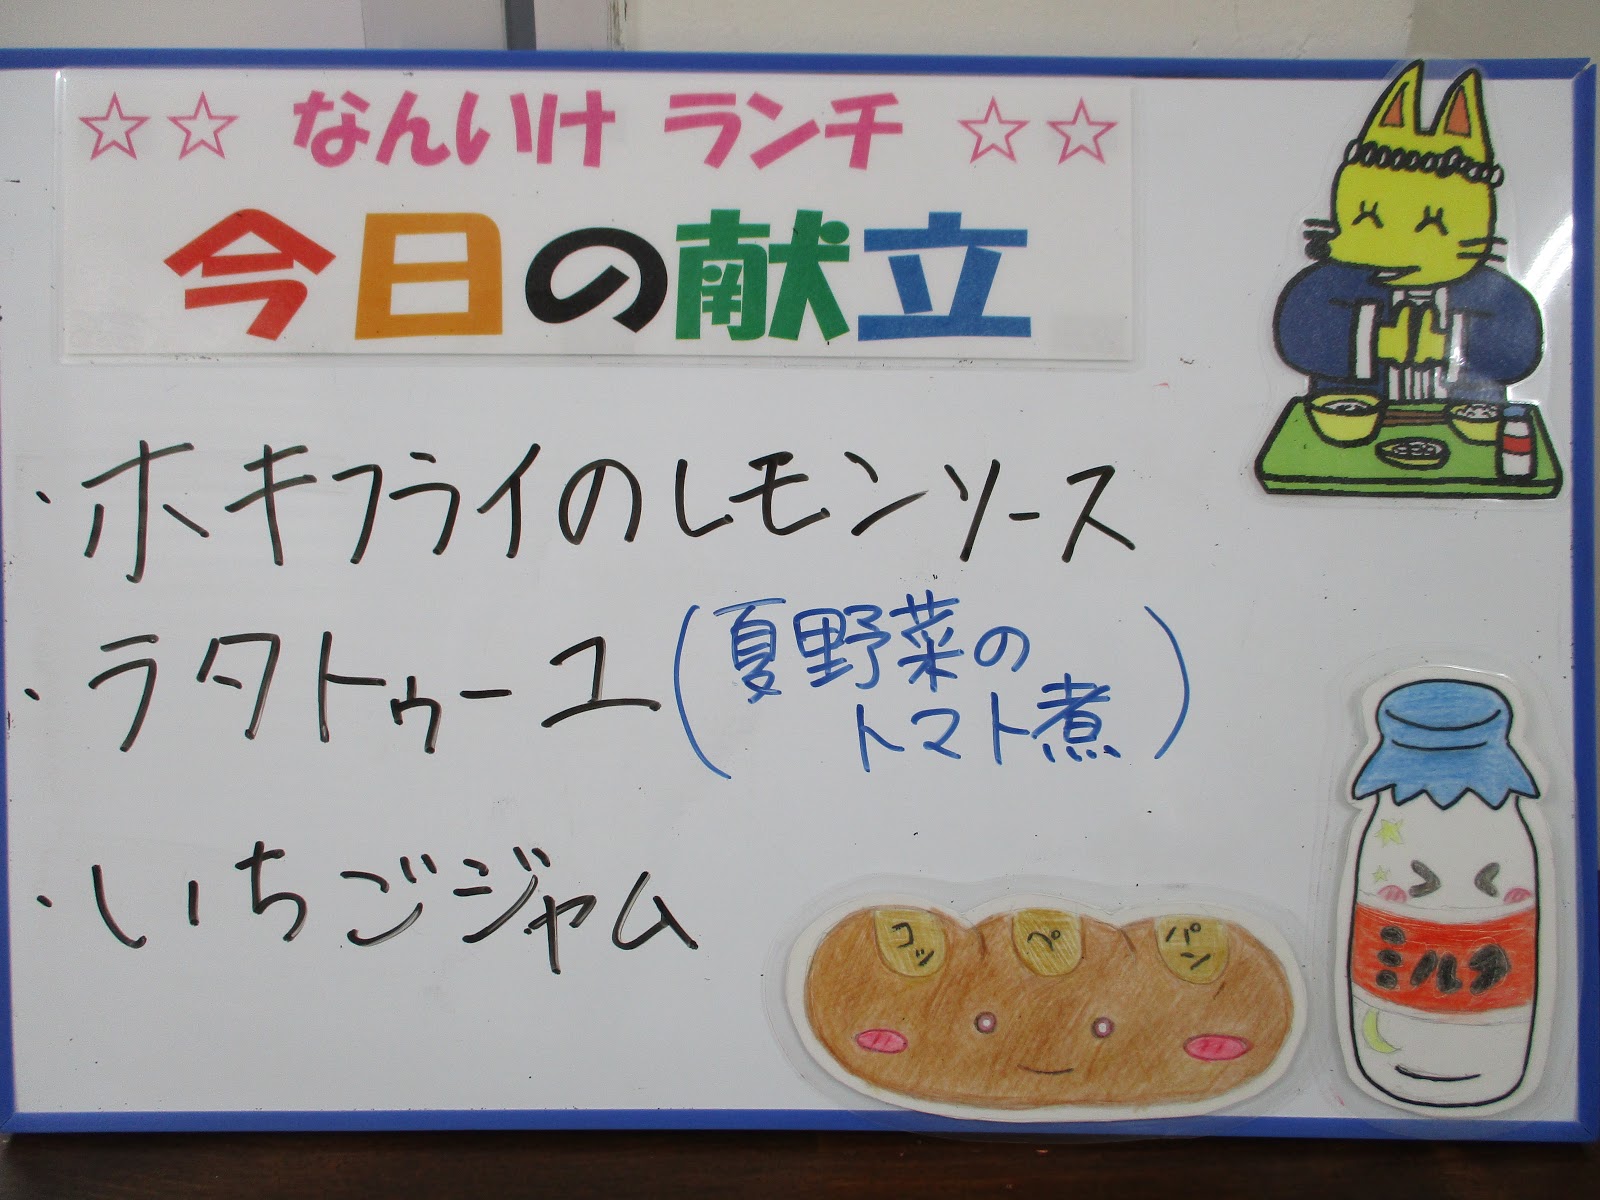 ☆☆ なんいけ ランチ ☆☆
今日の献立
・ホキフライのレモンソース
・ラタトゥーユ(夏野菜の
トマト煮)
・いちごジャム
コッペパン
ミルク